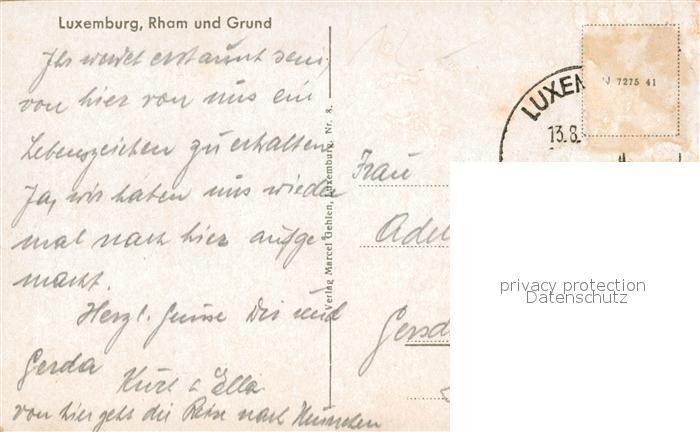 Luxemburg, Rham und Grund
Ihr werdet erstaunt sein,
von hier von uns ein
Lebenszeichen zu erhalten
Ja, wir haben uns wieder
mal nach hier aufge-
macht.
Herzl. Grüsse Dir und
Gerda
Kurt & Ella
von hier geht die Reise nach München
Verlag Marcel Gehlen, Luxemburg. Nr. 8.
LUXEM
13.8.
7275 41
Frau
Adel
Gersd
privacy protection
Datenschutz